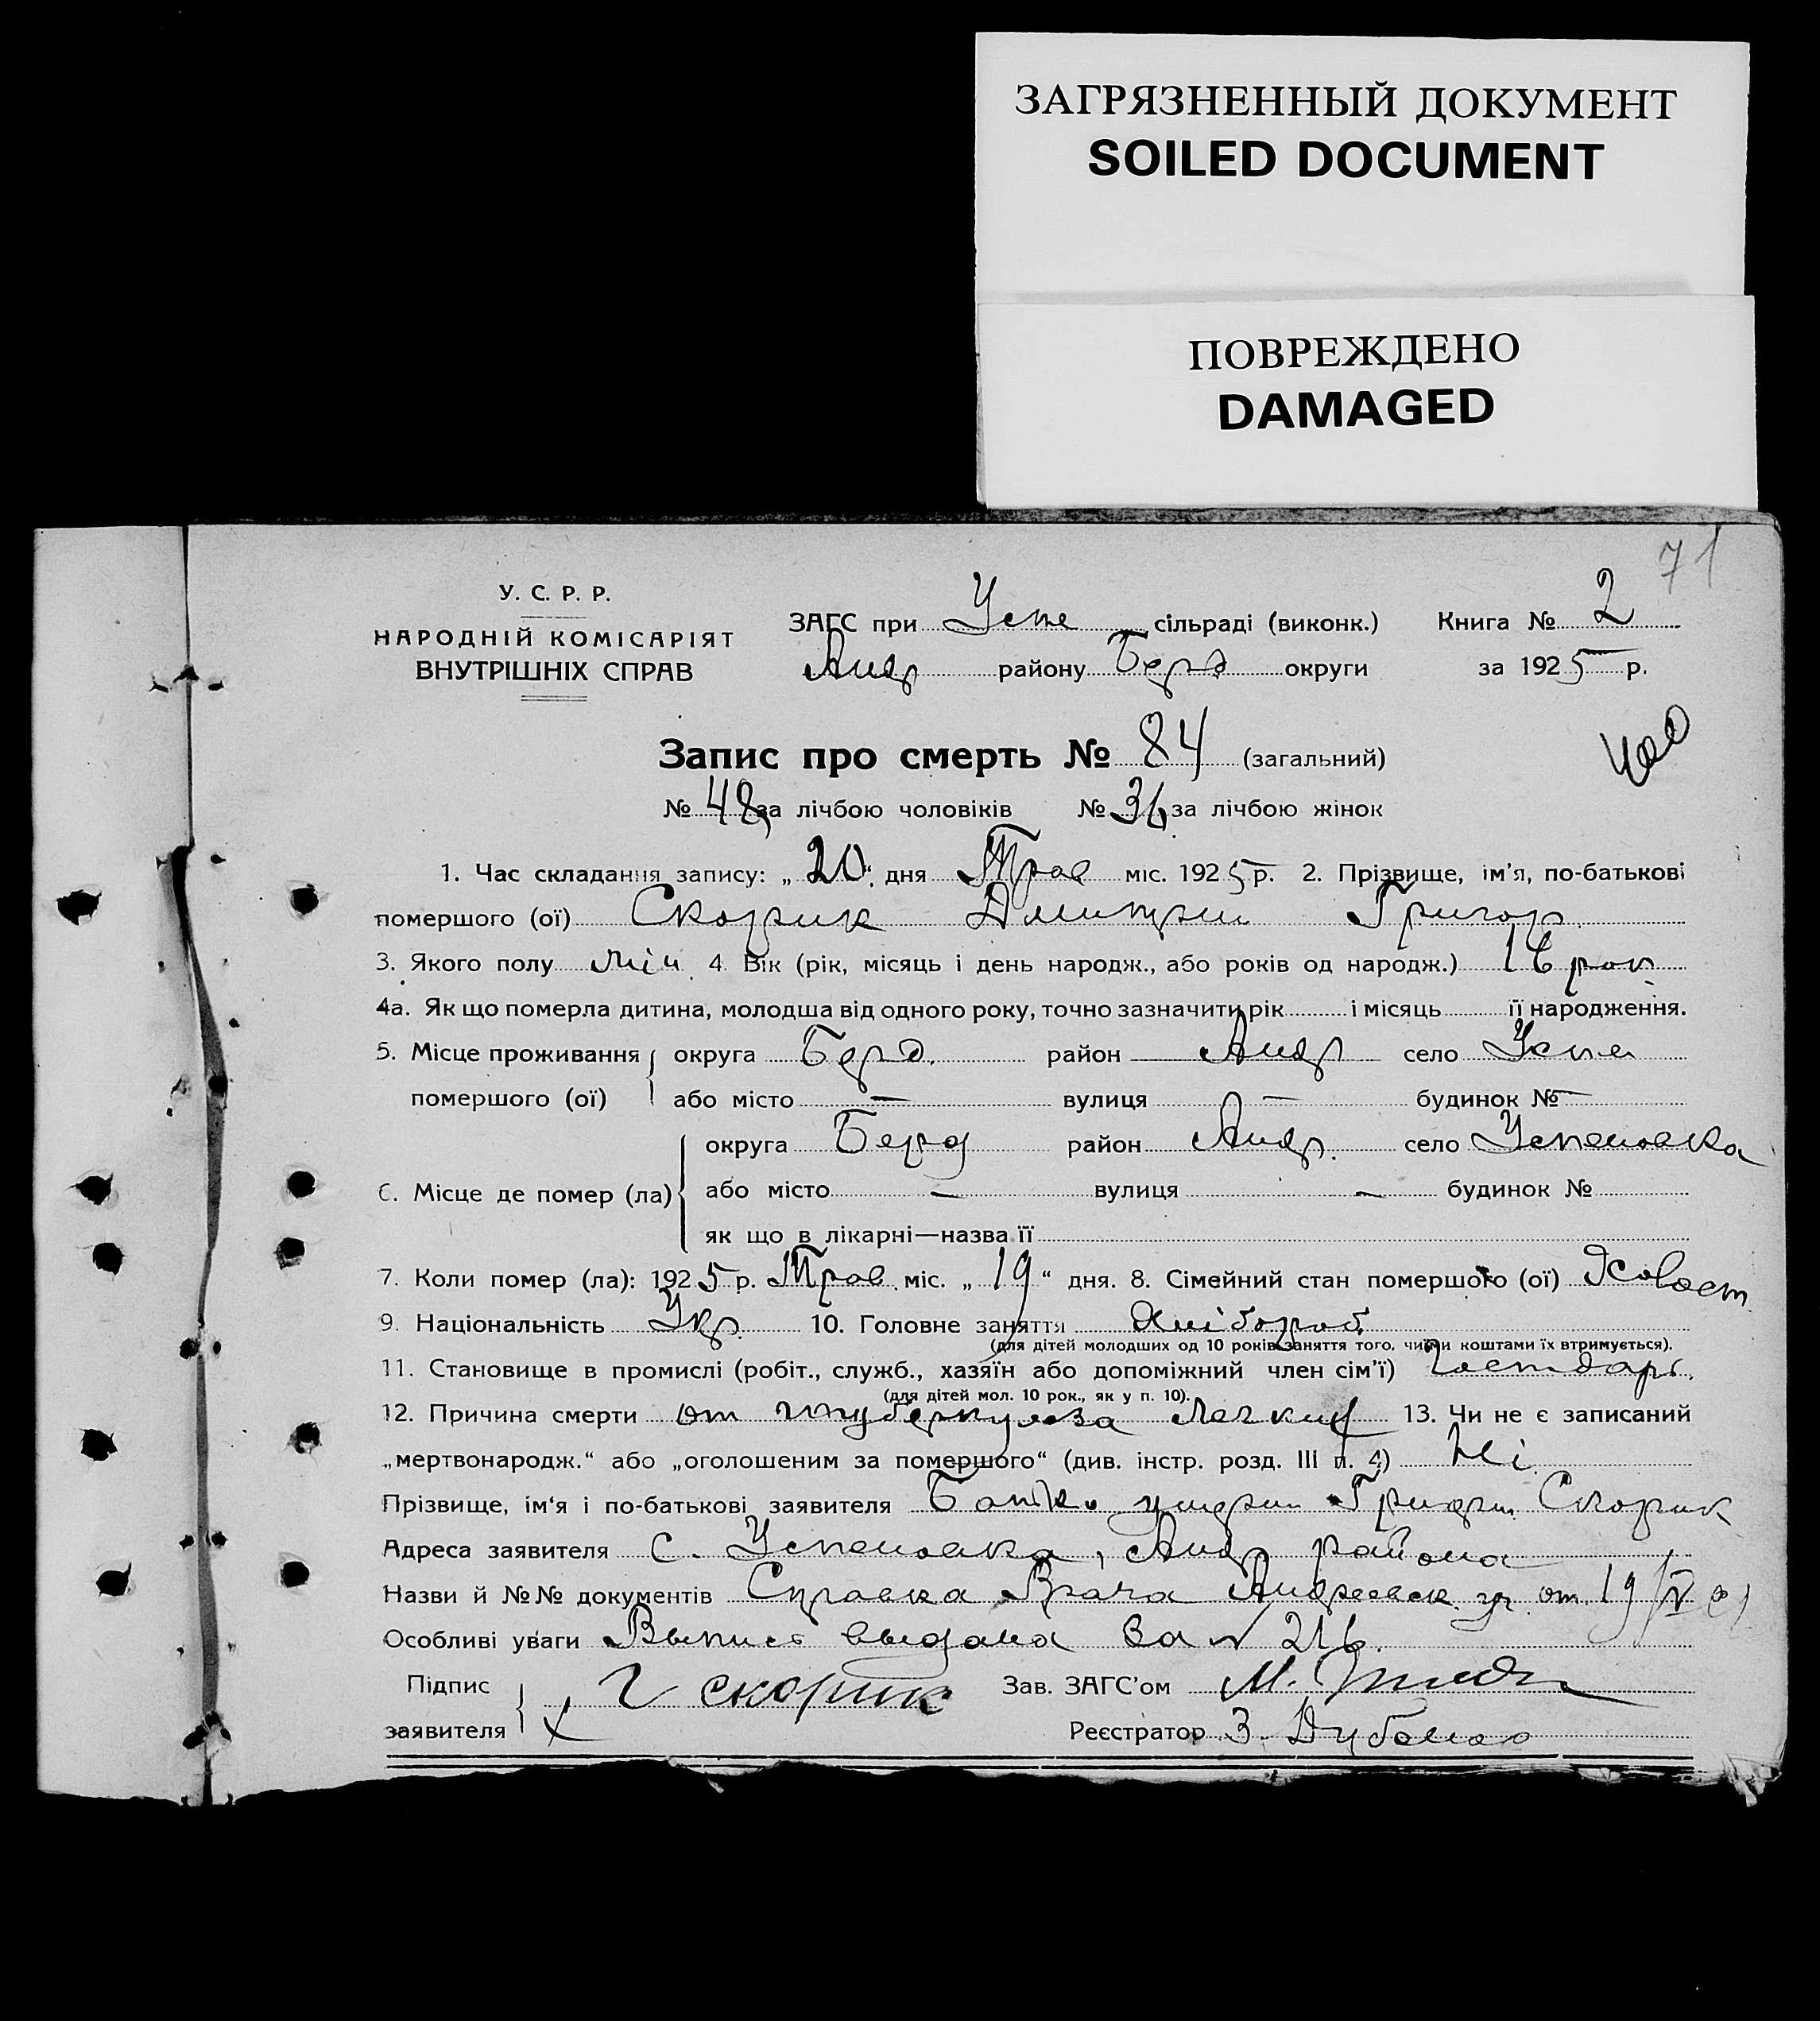 ЗАГРЯЗНЕННЫЙ ДОКУМЕНТ
SOILED DOCUMENT
ПОВРЕЖДЕНО
DAMAGED
71
У. С. Р. Р.
НАРОДНІЙ КОМІСАРІЯТ
ВНУТРІШНІХ СПРАВ
ЗАГС при Успе сільраді (виконк.) Книга № 2
Андр району Берд округи за 1925 р.
Запис про смерть № 84 (загальний)
№ 48 за лічбою чоловіків № 36 за лічбою жінок
1. Час складання запису: „20“ дня Трав міс. 1925 р. 2. Прізвище, ім'я, по-батькові
помершого (ої) Скорик Дмитрий Григор
3. Якого полу 4. Вік (рік, місяць і день народж., або років од народж.) 16 рок
4а. Як що померла дитина, молодша від одного року, точно зазначити рік і місяць її народження.
5. Місце проживання округа Берд. район Андр село Успе
помершого (ої) або місто — вулиця — будинок № —
округа Берд район Андр. село Успеновка
6. Місце де помер (ла) або місто — вулиця — будинок №
як що в лікарні—назва її
7. Коли помер (ла): 1925 р. Трав міс. „19“ дня. 8. Сімейний стан помершого (ої)
9. Національність Укр. 10. Головне заняття Хлібороб
(для дітей молодших од 10 років заняття того, чиїми коштами їх втримується).
11. Становище в промислі (робіт., служб., хазяїн або допоміжний член сім'ї)
(для дітей мол. 10 рок., як у п. 10).
12. Причина смерти от туберкулеза легких 13. Чи не є записаний
„мертвонародж.“ або „оголошеним за помершого“ (див. інстр. розд. III п. 4) Ні
Прізвище, ім'я і по-батькові заявителя Батько Скорик
Адреса заявителя с. Успеновка, Андр района
Назви й №№ документів Справка Врача Андреевск. от 19/V
Особливі уваги Выпись выдана за № 216.
Підпис Г Скорик Зав. ЗАГС'ом М.
заявителя Реєстратор З.